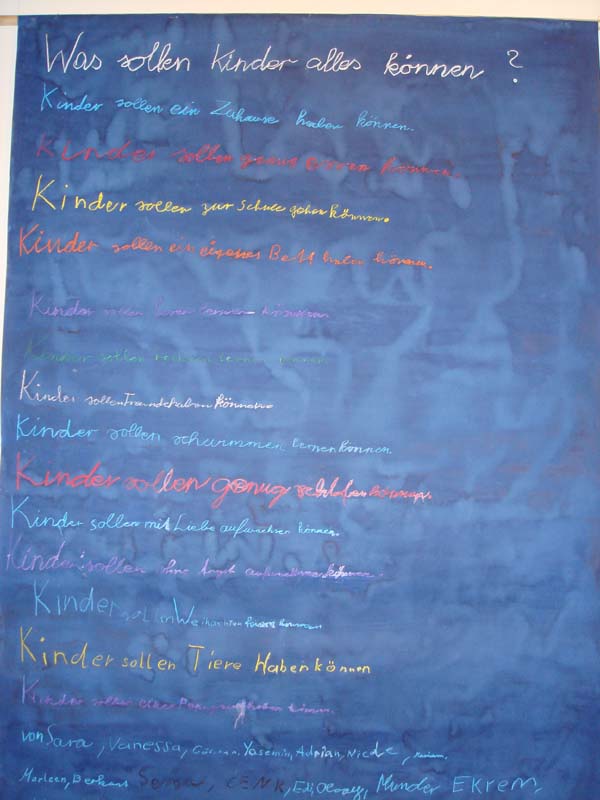 Was sollen Kinder alles können ?
Kinder sollen ein Zuhause haben können.
Kinder sollen genug können.
Kinder sollen zur Schule gehen können.
Kinder sollen ein eigenes Bett haben können.
Kinder sollen lernen
Kinder sollen rechnen lernen können
Kinder sollen Freunde haben können
Kinder sollen schwimmen lernen können.
Kinder sollen genug schlafen können.
Kinder sollen mit Liebe aufwachsen können.
Kinder sollen ohne Angst aufwachsen können.
Kinder sollen Weihnachten feiern können
Kinder sollen Tiere Haben können
Kinder sollen
von Sara, Vanessa, Yasemin, Adrian, Nicole,
Marleen, Berkant CENK, EKREM